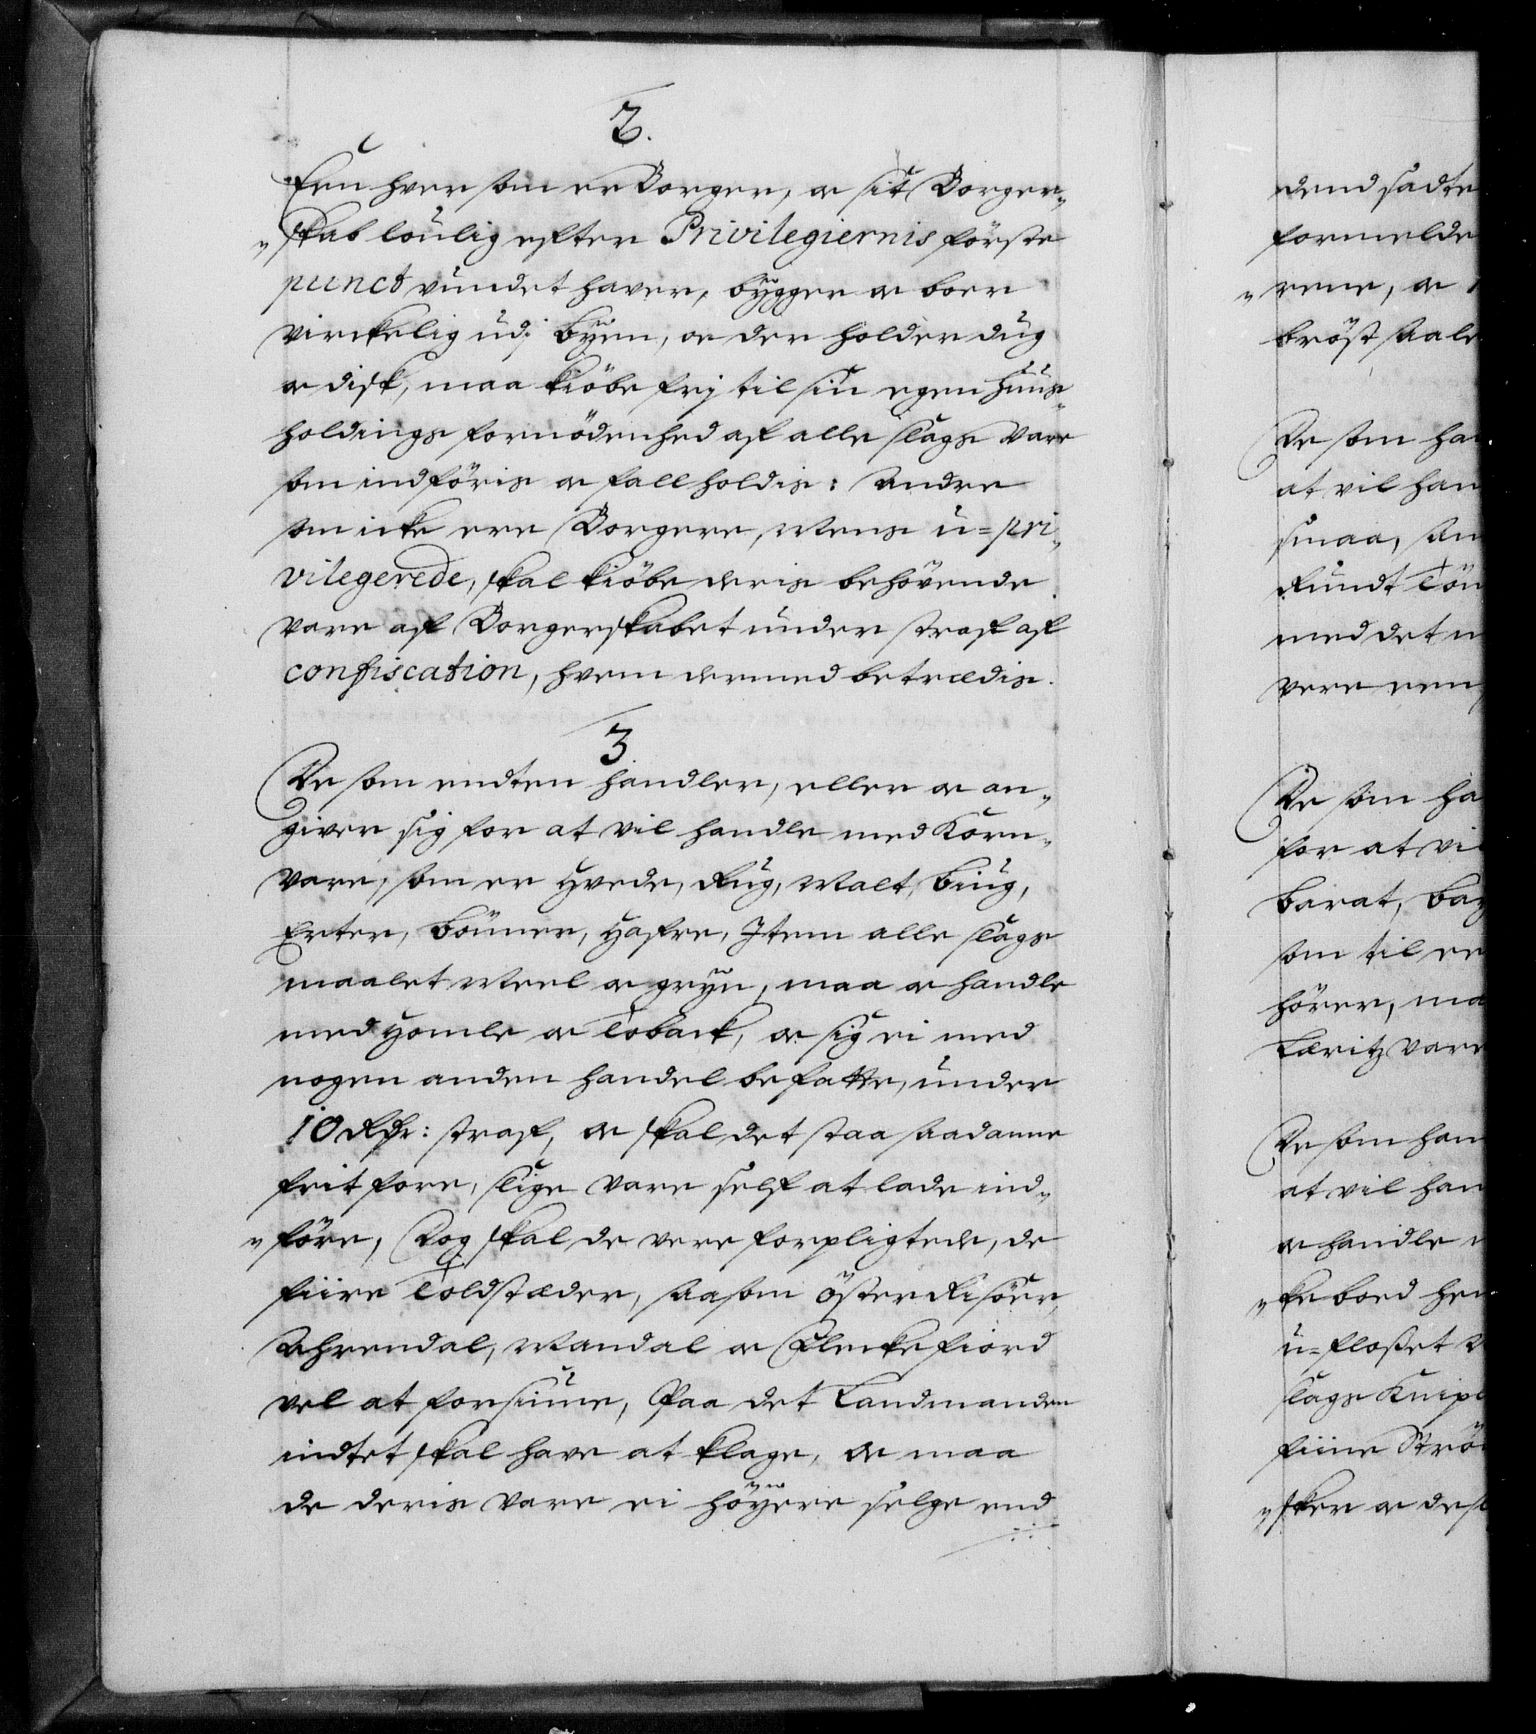 2.
Een hver som er Borger, oc sit Borger„
„skab loulig efter Privilegiernis förste
punct vundet haver, bÿgger oc boer
virckelig udj Byen, oc der holder dug
oc disk, maa kiöbe frj til sin egen huus„
holdings fornödenhed af alle slags Vare
som indföris oc fall holdis: Andre
som icke ere Borgere, Mens u=pri„
vilegerede, skal kiöbe deris behövende
Vare af Borgerskabet under straf af
confiscation, hvem dermed betrædis.
3.
De som endten handler, eller oc an„
giver sig for at vil handle med Korn„
Vare, som er Hvede, Rug, Malt, Biug,
Erter, Bönner, Hafre, Item alle slags
maalet Meel oc gryn, maa oc handle
med Homle oc Toback, oc sig ei med
nogen anden handel befatte, under
10 Rdr: straf, oc skal det staa saadanne
frit fore, slige Vare self at lade ind„
„före, Dog skal de vere forpligtede, de
fiire Toldstæder, saasom Öster Risöer,
Ahrendal, Mandal oc Fleckefiord
vel at forsiune, Paa det Landmanden
indtet skal have at klage, oc maa
de deris Vare ei höÿere selge end
dend sadte
formelde
„rene, oc
bröst saale
De som han
at vil han
smaa, san
Rundt Tön
med det n
vere een
De som ha
for at vi
Barat, Bay
som til ee
hörer, ma
Læritz Vare
De som han
at vil han
oc handle
„ke boed hen
u=floßet
slags Knipl
fiine Strö
„sker oc des